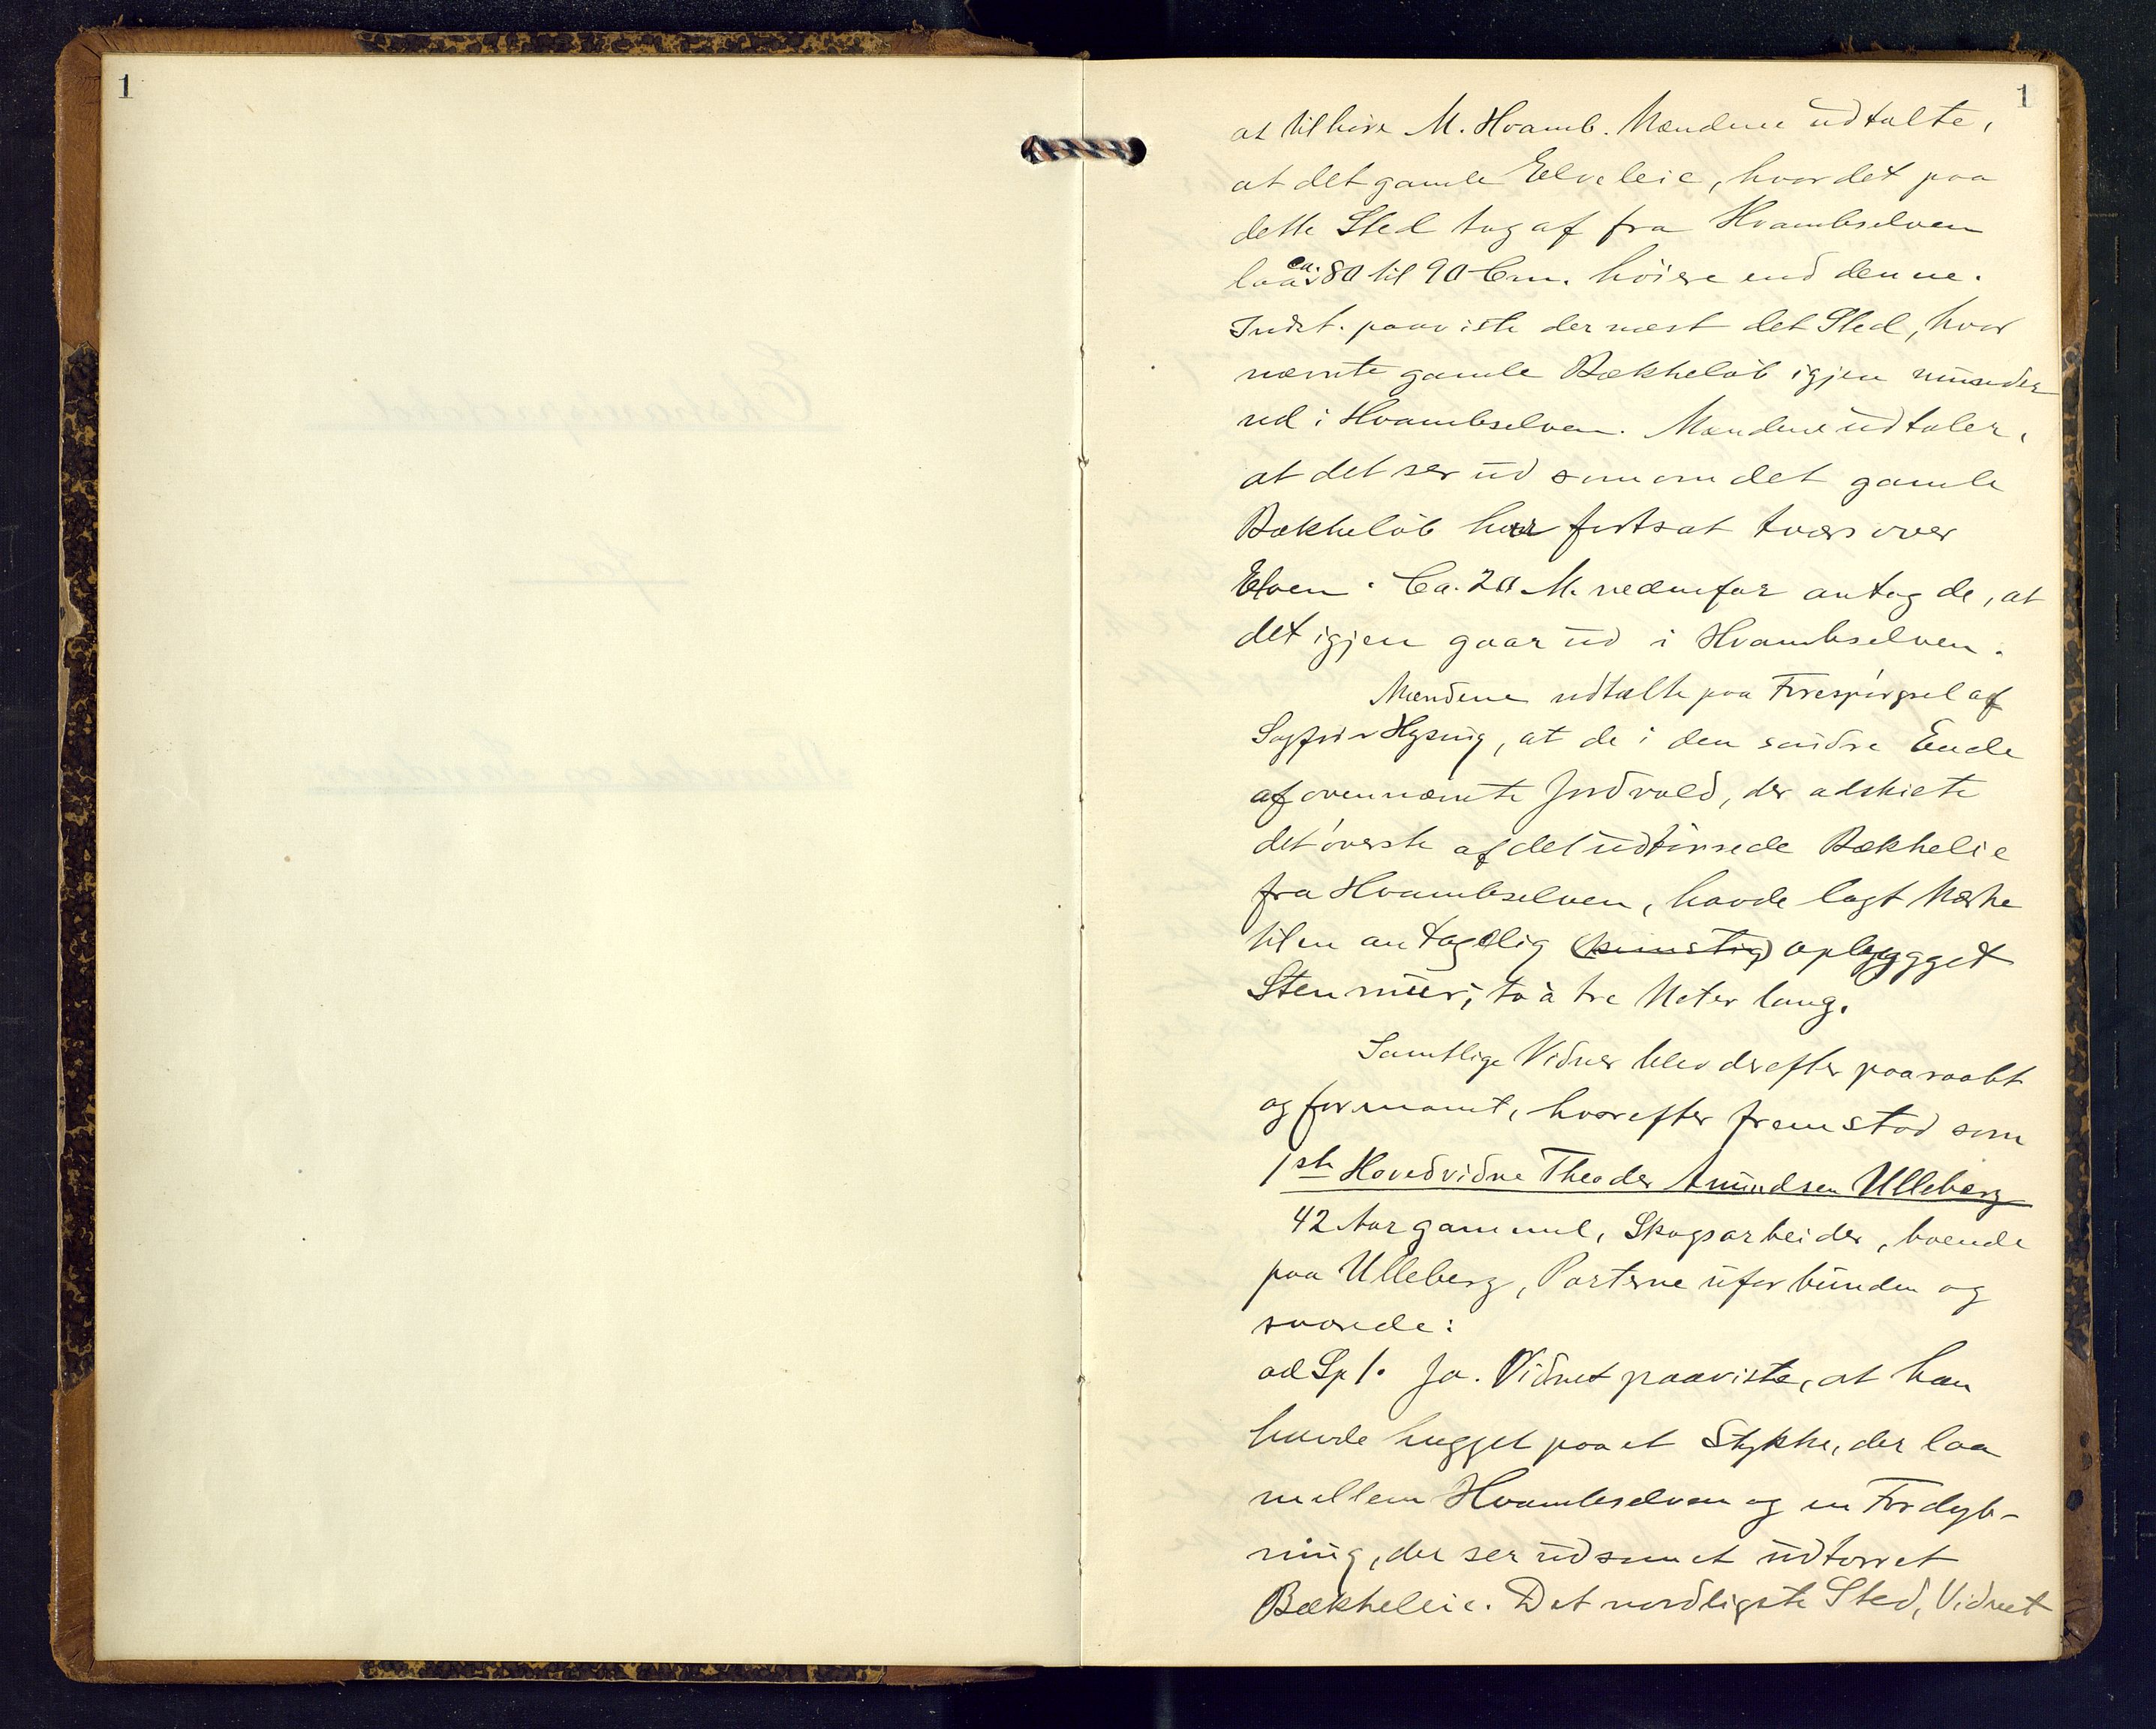 1
1
at tilhøre M. Hvamb. Mændene udtalte,
at det gamle Elveleie, hvor det paa
dette Sted tog af fra Hvambselven
laa ca. 80 til 90 Cm. høiere end denne.
Indst. paaviste dernæst det Sted, hvor
nævnte gamle Bækheløb igjen munder
ud i Hvambselven. Mændene udtaler,
at det ser ud som om det gamle
Bækheløb har fortsat tvers over
Elven. Ca. 20 M. nedenfor antog de, at
det igjen gaar ud i Hvambselven.
Mændene udtalte paa Forespørgsel af
Sagfører Hysing, at de i den søndre Ende
af ovennævnte Jordvold, der adskilte
det øverste af det udtørrede Bækheleie
fra Hvambselven, havde lagt Mærke
til en antagelig (kunstig) oplygget
Stenmur, to à tre Meter lang.
Samtlige Vidner blev derefter paaraabt
og formanet, hvorefter fremstod som
1ste Hovedvidne Theodor Amundsen Ulleberg
42 Aar gammel, Skogsarbeider, boende
paa Ulleberg, Parterne uforbunden og
svarede:
ad Sp 1. Ja. Vidnet paaviste, at han
havde hugget paa et Stykke, der laa
mellem Hvambselven og en Fordyb-
ning, der ser ud som et udtørret
Bækheleie. Det nordligste Sted, Vidnet